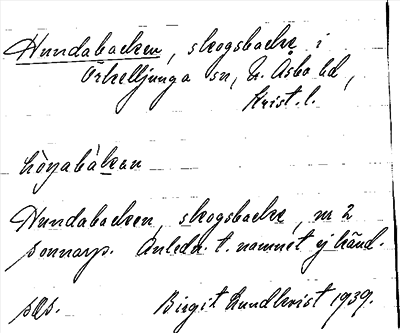 Hundabacken, skogsbacke i
Örkelljunga sn, N. Åsbo hd,
Krist. l.
Hundabacken, skogsbacke, nr 2
sonnarp. Anledn. t. namnet ej känd.
Birgit Lundkvist 1939.